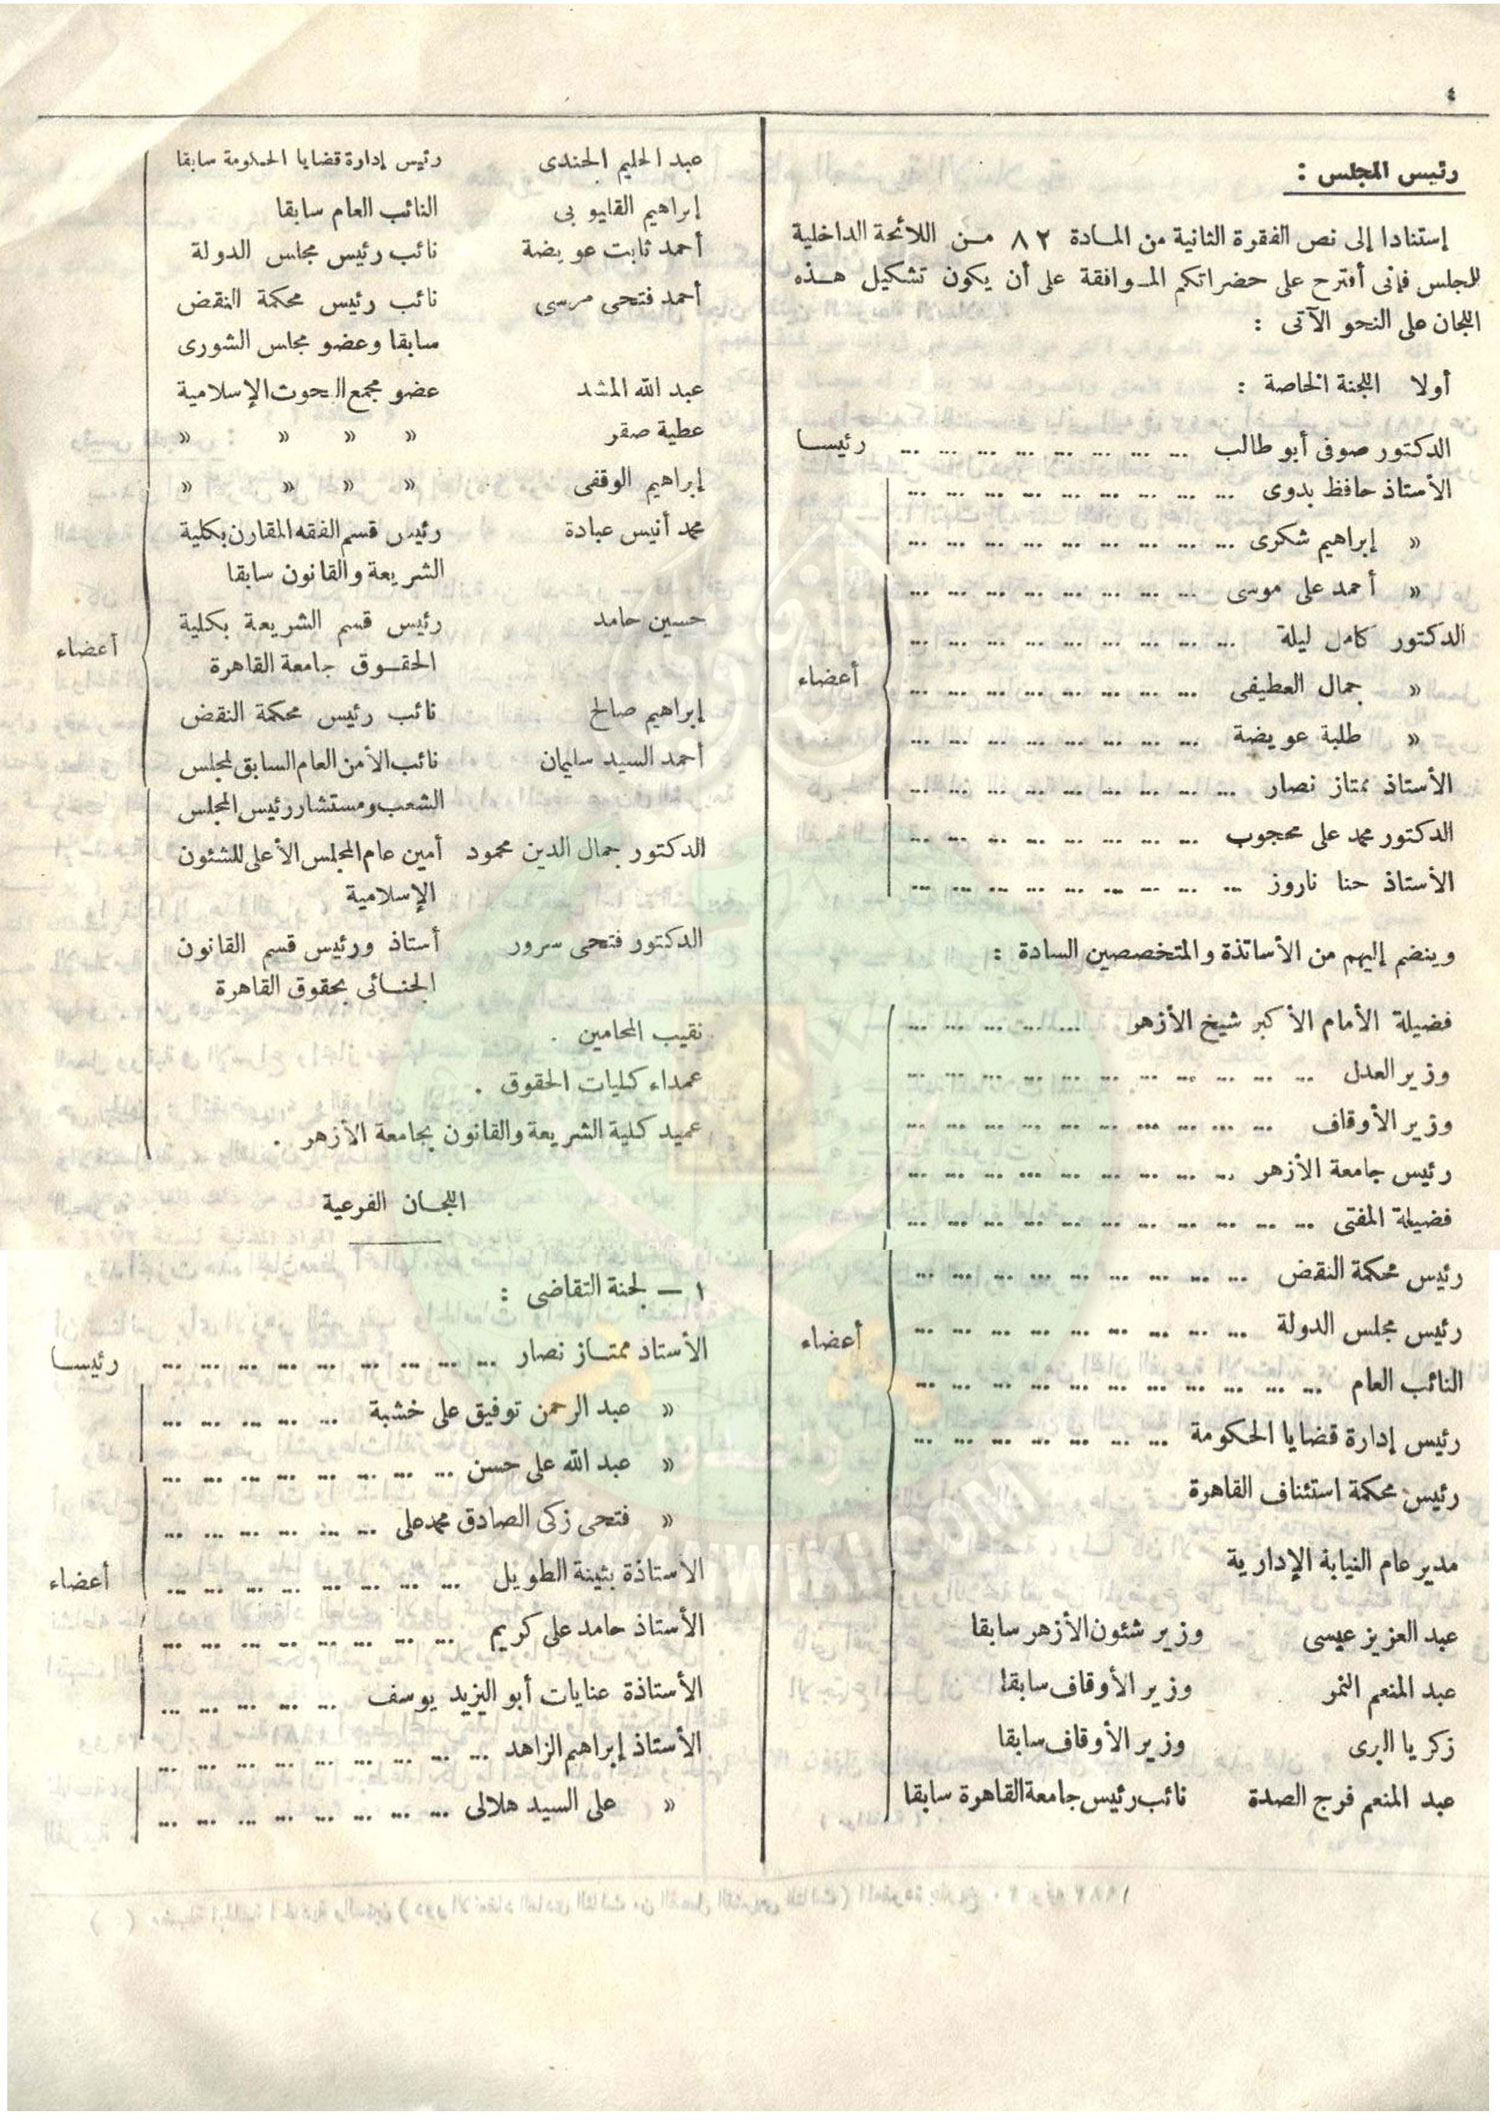 ٤
رئيس المجلس :
إستنادا إلى نص الفقرة الثانية من المادة ٨٢ من اللائحة الداخلية
للمجلس فإنى أقترح على حضراتكم الموافقة على أن يكون تشكيل هذه
اللجان على النحو الآتى :
أولا اللجنة الخاصة :
الدكتور صوفى أبو طالب ... ... ... ... ... ... ... ... رئيسا
الأستاذ حافظ بدوى ... ... ... ... ... ... ... ... ...
« إبراهيم شكرى ... ... ... ... ... ... ... ... ...
« أحمد على موسى ... ... ... ... ... ... ... ...
الدكتور كامل ليلة ... ... ... ... ... ... ... ... ...
« جمال العطيفى ... ... ... ... ... ... ... ... أعضاء
« طلبة عويضة ... ... ... ... ... ... ... ...
الأستاذ ممتاز نصار ... ... ... ... ... ... ... ... ...
الدكتور محمد على محجوب ... ... ... ... ... ... ... ...
الأستاذ حنا ناروز ... ... ... ... ... ... ... ... ...
وينضم إليهم من الأساتذة والمتخصصين السادة :
فضيلة الأمام الأكبر شيخ الأزهر ... ... ... ... ...
وزير العدل ... ... ... ... ... ... ... ... ... ... ...
وزير الأوقاف ... ... ... ... ... ... ... ... ... ...
رئيس جامعة الأزهر ... ... ... ... ... ... ... ... ...
فضيلة المفتى ... ... ... ... ... ... ... ... ... ... ...
رئيس محكمة النقض ... ... ... ... ... ... ... ... ...
رئيس مجلس الدولة ... ... ... ... ... ... ... ... ... أعضاء
النائب العام ... ... ... ... ... ... ... ... ... ... ...
رئيس إدارة قضايا الحكومة ... ... ... ... ... ... ...
رئيس محكمة استئناف القاهرة
مدير عام النيابة الإدارية
عبد العزيز عيسى وزير شئون الأزهر سابقا
عبد المنعم النمر وزير الأوقاف سابقا
زكريا البرى وزير الأوقاف سابقا
عبد المنعم فرج الصدة نائب رئيس جامعة القاهرة سابقا
عبد الحليم الجندى رئيس إدارة قضايا الحكومة سابقا
إبراهيم القليوبى النائب العام سابقا
أحمد ثابت عويضة نائب رئيس مجلس الدولة
أحمد فتحى مرسى نائب رئيس محكمة النقض
سابقا وعضو مجلس الشورى
عبد الله المشد عضو مجمع البحوث الإسلامية
عطية صقر « « « «
إبراهيم الوقفى « « « «
محمد أنيس عبادة رئيس قسم الفقه المقارن بكلية
الشريعة والقانون سابقا
حسين حامد رئيس قسم الشريعة بكلية
الحقوق جامعة القاهرة أعضاء
إبراهيم صالح نائب رئيس محكمة النقض
أحمد السيد سليمان نائب الأمن العام السابق لمجلس
الشعب ومستشار رئيس المجلس
الدكتور جمال الدين محمود أمين عام المجلس الأعلى للشئون
الإسلامية
الدكتور فتحى سرور أستاذ ورئيس قسم القانون
الجنائى بحقوق القاهرة
نقيب المحامين .
عمداء كليات الحقوق .
عميد كلية الشريعة والقانون بجامعة الأزهر .
اللجان الفرعية
١ — لجنة التقاضى :
الأستاذ ممتاز نصار ... ... ... ... ... ... ... ... ... رئيسا
« عبد الرحمن توفيق على خشبة ... ... ... ... ...
« عبد الله على حسن ... ... ... ... ... ... ... ...
« فتحى زكى الصادق محمد على ... ... ... ... ... ...
الأستاذة بثينة الطويل ... ... ... ... ... ... ... ... أعضاء
الأستاذ حامد على كريم ... ... ... ... ... ... ... ...
الأستاذة عنايات أبو اليزيد يوسف ... ... ... ... ...
الأستاذ إبراهيم الزاهد ... ... ... ... ... ... ... ... ...
« على السيد هلالى ... ... ... ... ... ... ... ...